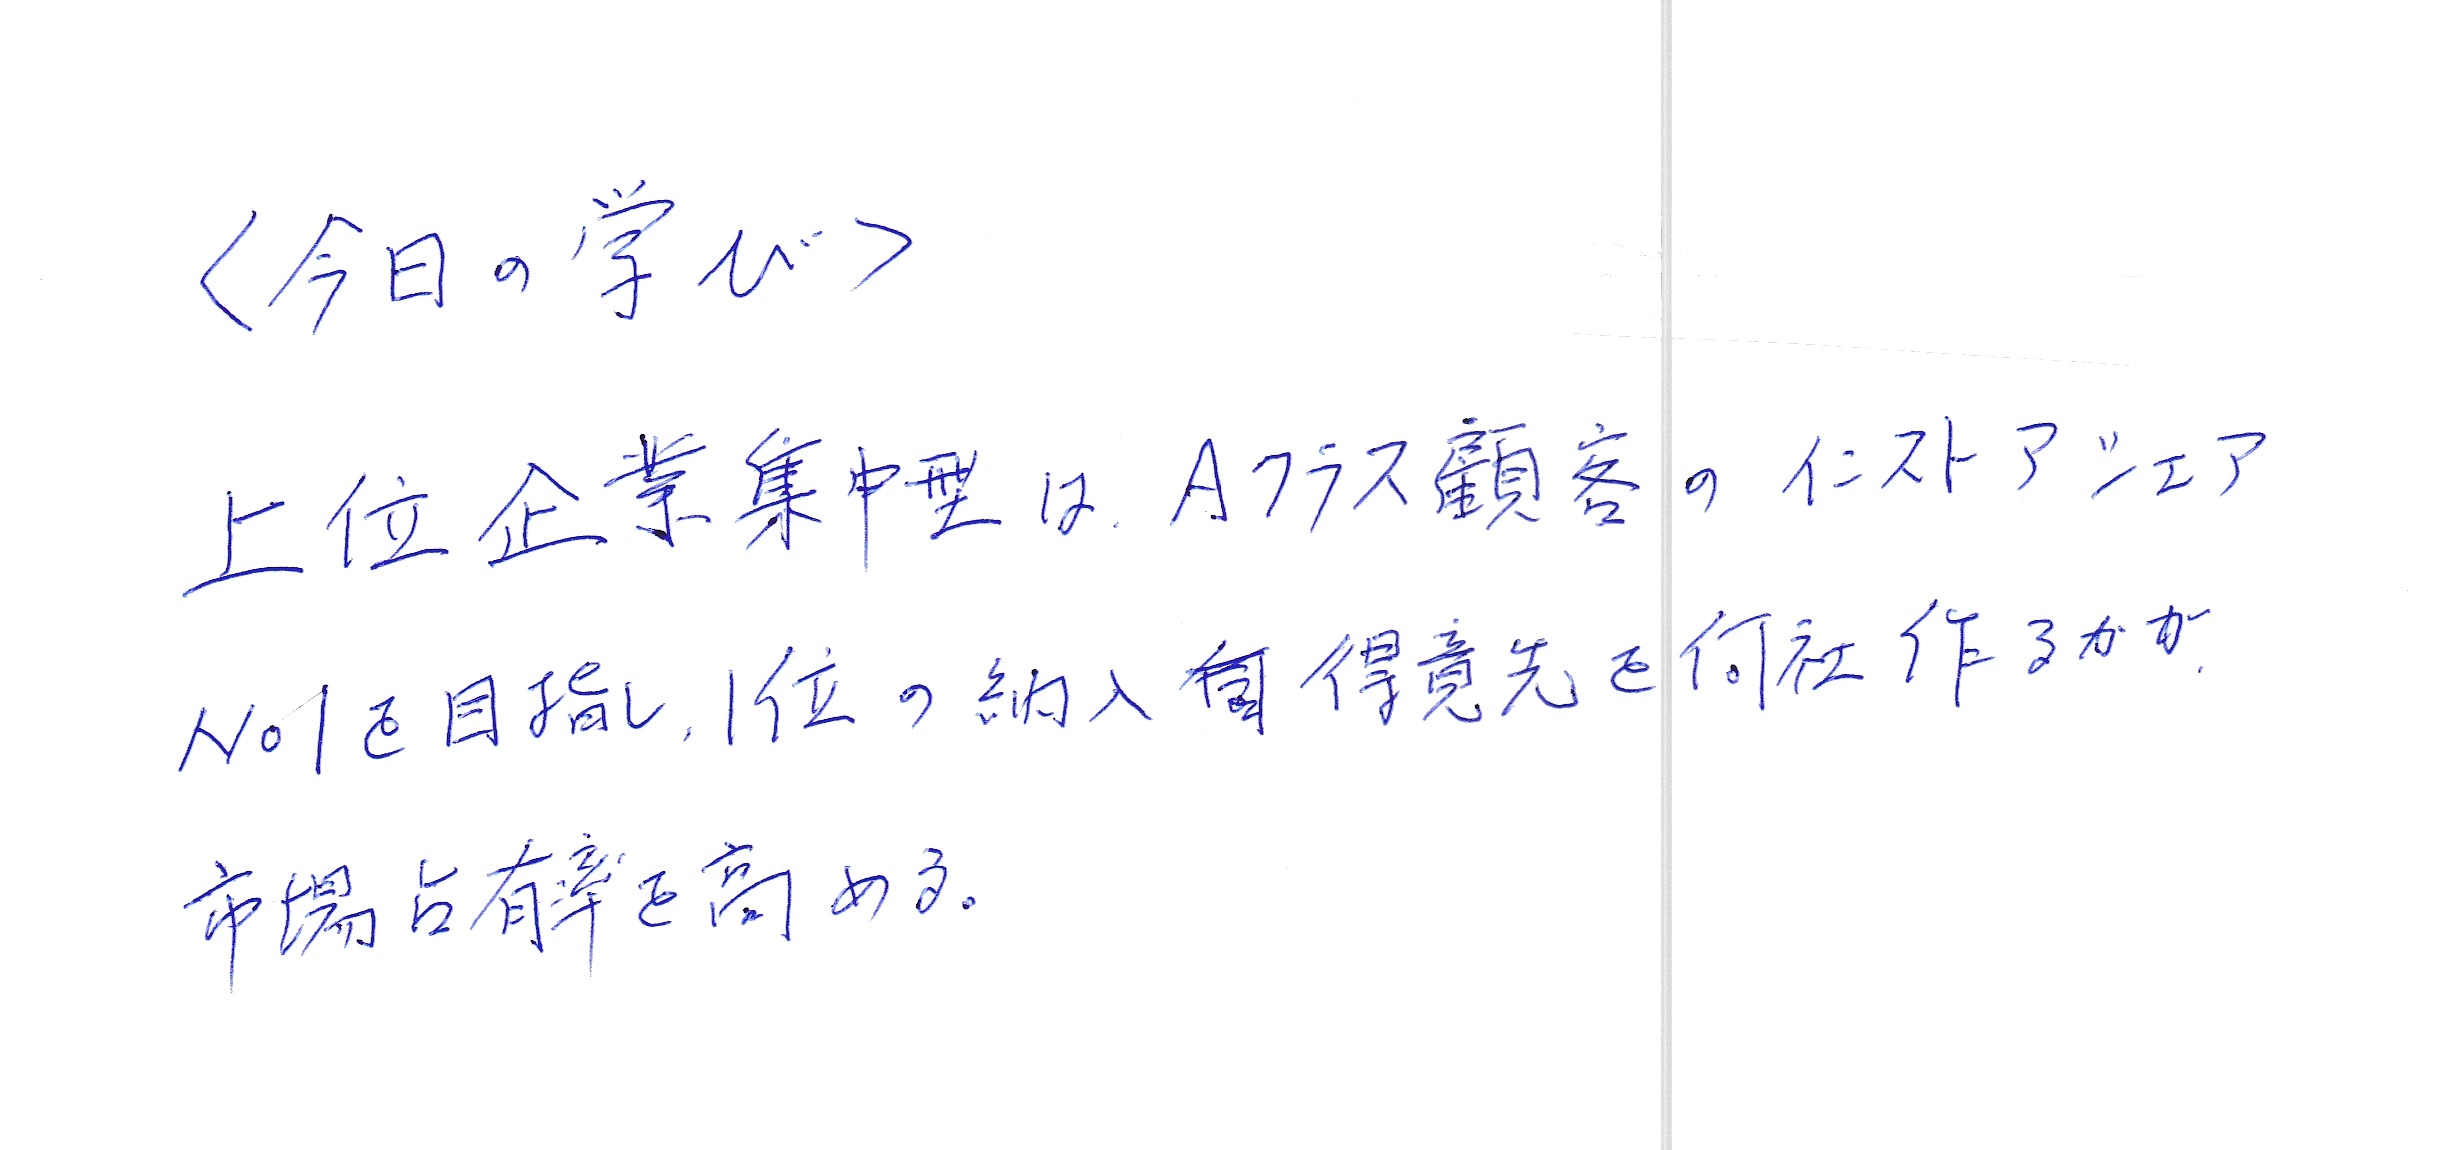 <今日の学び>
上位企業集中型は、Aクラス顧客のインストアシェア
No1を目指し、1位の納入 得意先を何社作るかが、
市場占有率を高める。